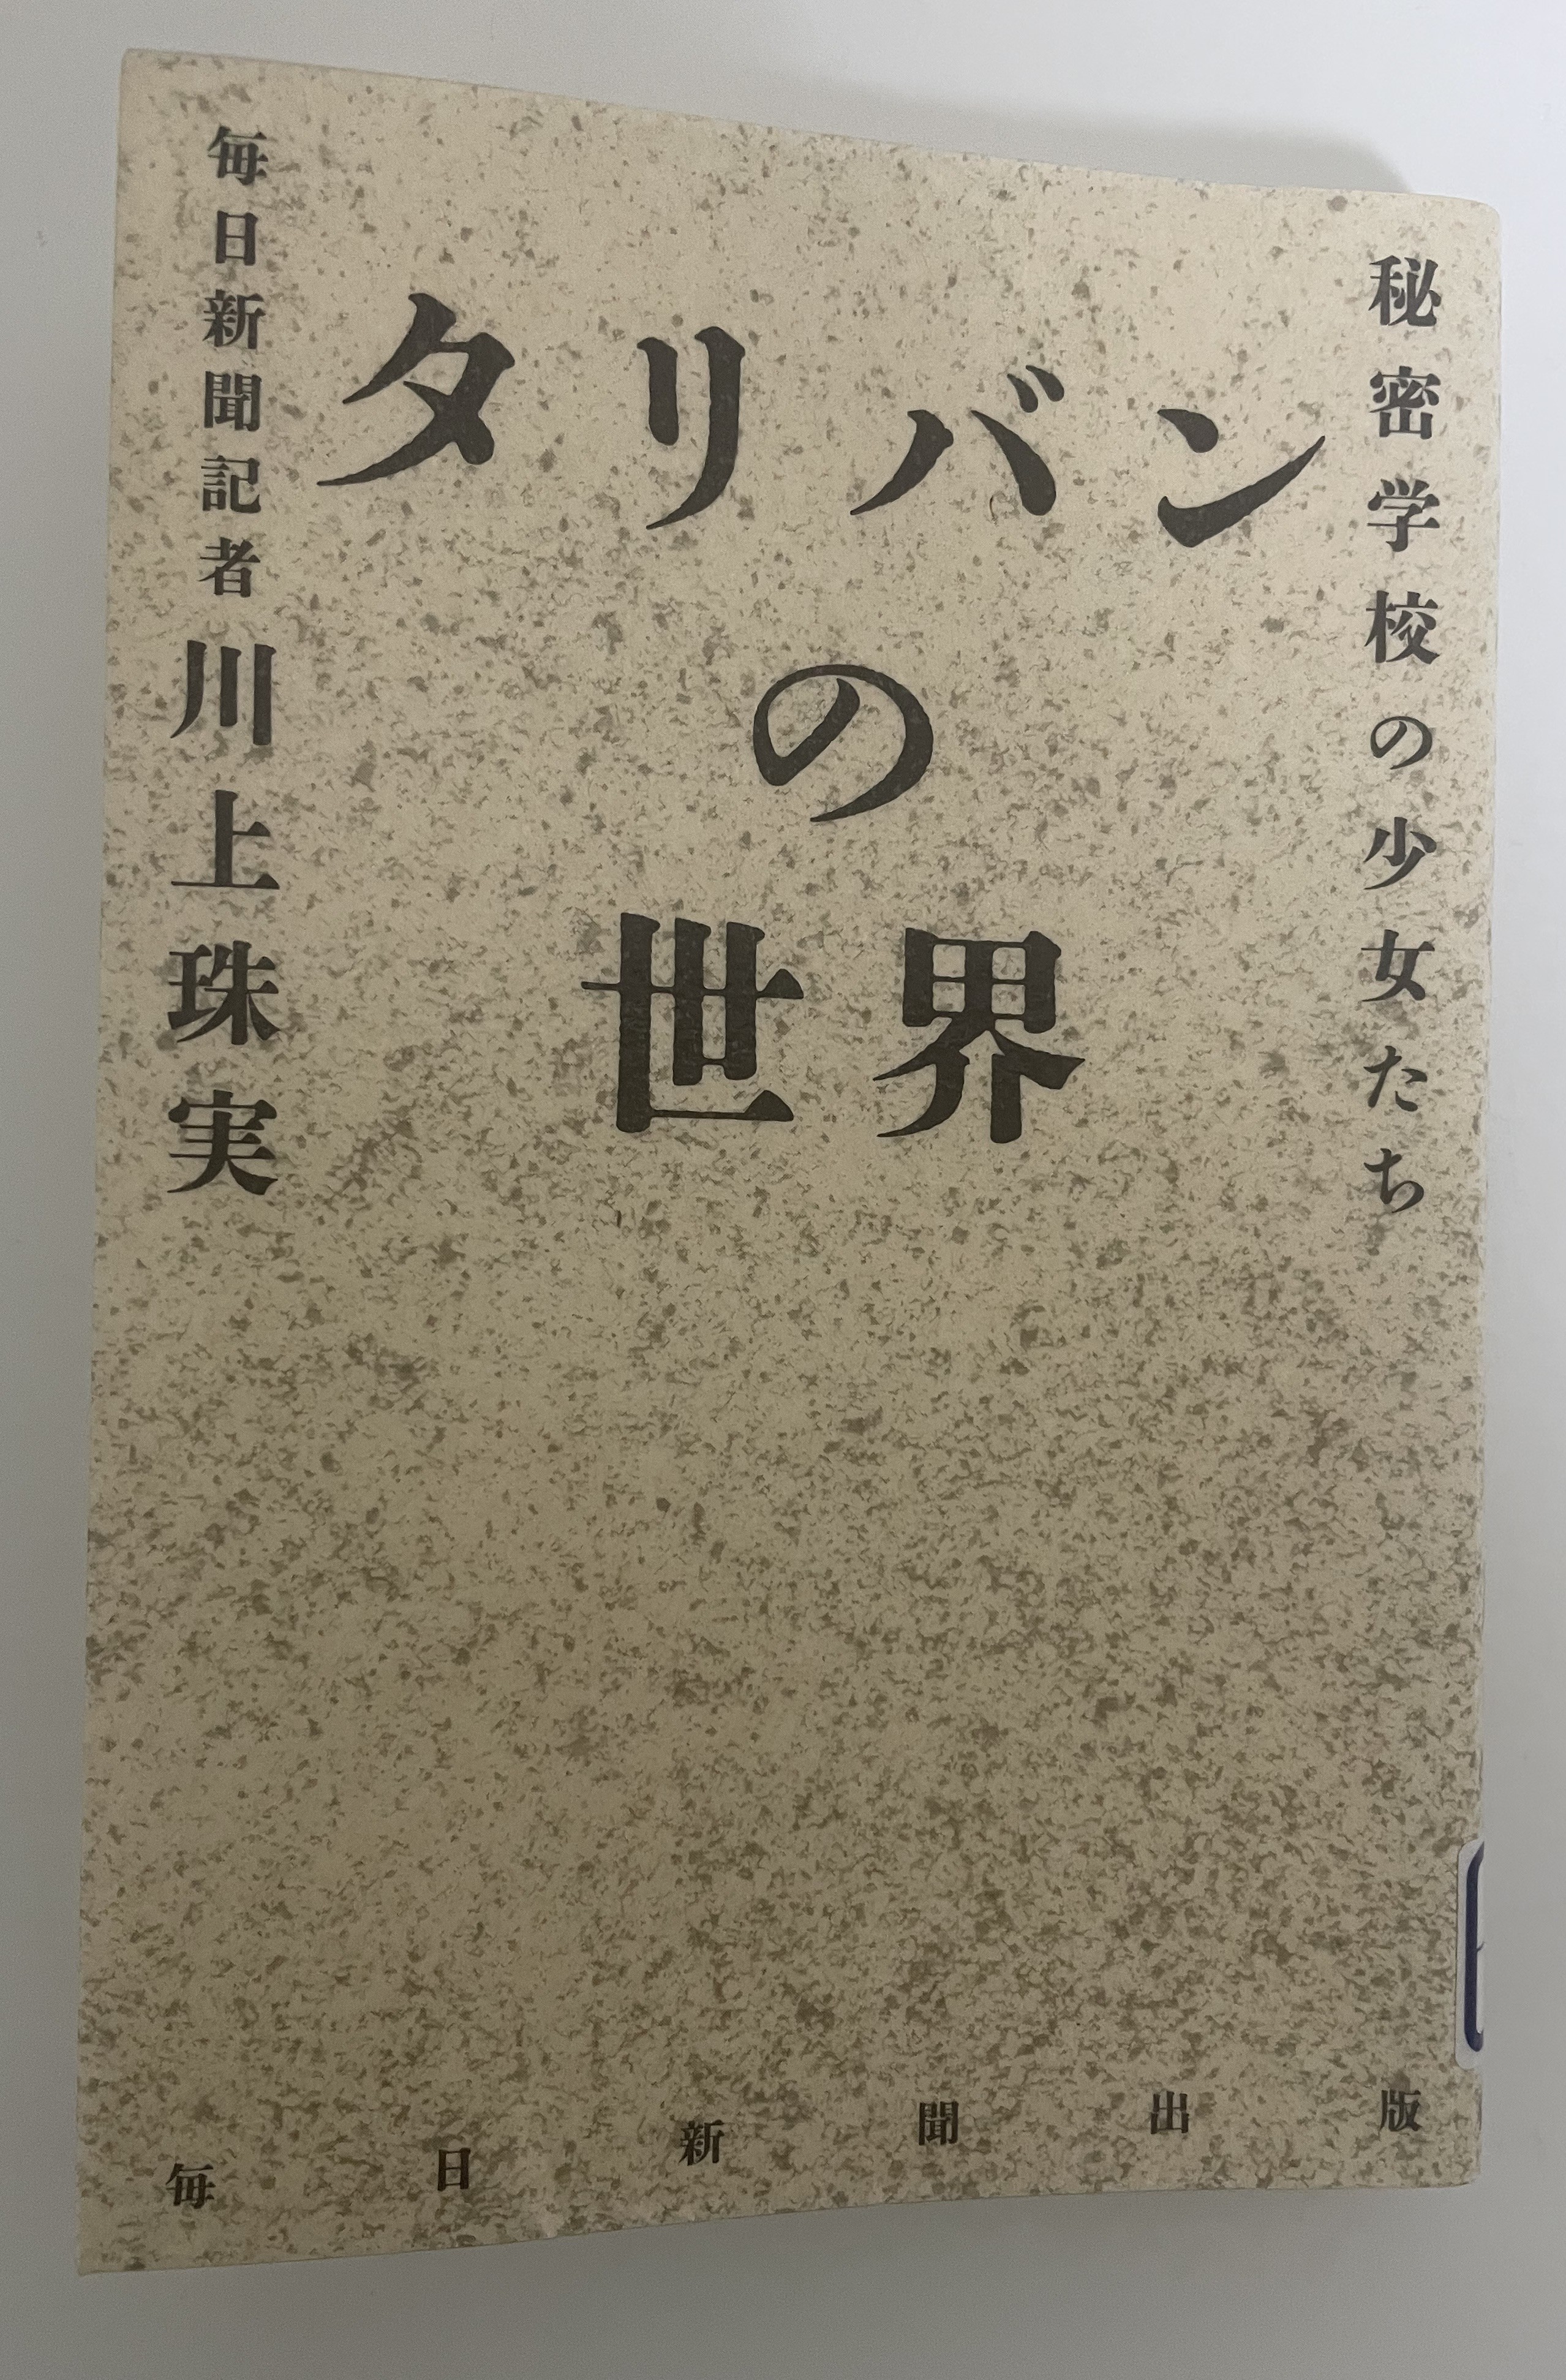 秘密学校の少女たち
タリバン
の
世界
毎日新聞記者 川上珠実
毎日新聞出版